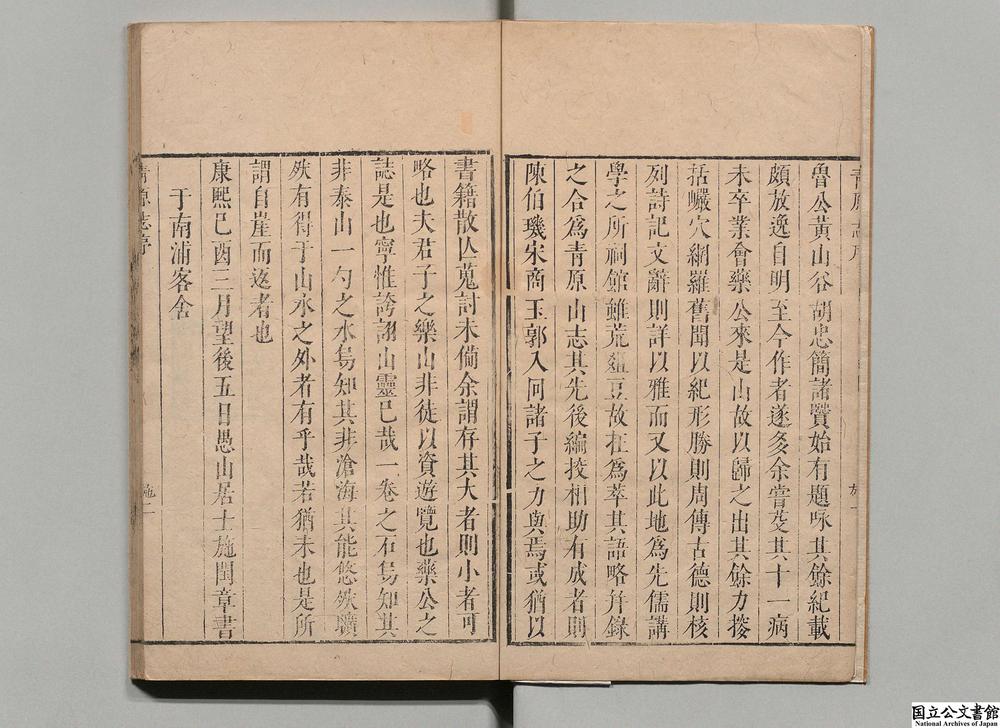 魯公黃山谷胡忠簡諸賢始有題咏其餘紀載
頗放逸自明至今作者遂多余嘗芟其十一病
未卒業會藥公來是山故以歸之出其餘力搜
括巖穴網羅舊聞以紀形勝則周傳古德則核
列詩記文辭則詳以雅而又以此地爲先儒講
學之所祠館雖荒俎豆故在爲萃其語略并錄
之合爲青原山志其先後編挍相助有成者則
陳伯璣宋商玉郭入冋諸子之力與焉或猶以
書籍散亾蒐討未備余謂存其大者則小者可
略也夫君子之樂山非徒以資遊覽也藥公之
誌是也寧惟誇詡山靈已哉一卷之石烏知其
非泰山一勺之水烏知其非滄海其能悠然曠
然有得于山水之外者有乎哉若猶未也是所
謂自崖而返者也
康熙己酉三月望後五日愚山居士施閏章書
于南浦客舍
青原志序
施二
国立公文書館
National Archives of Japan